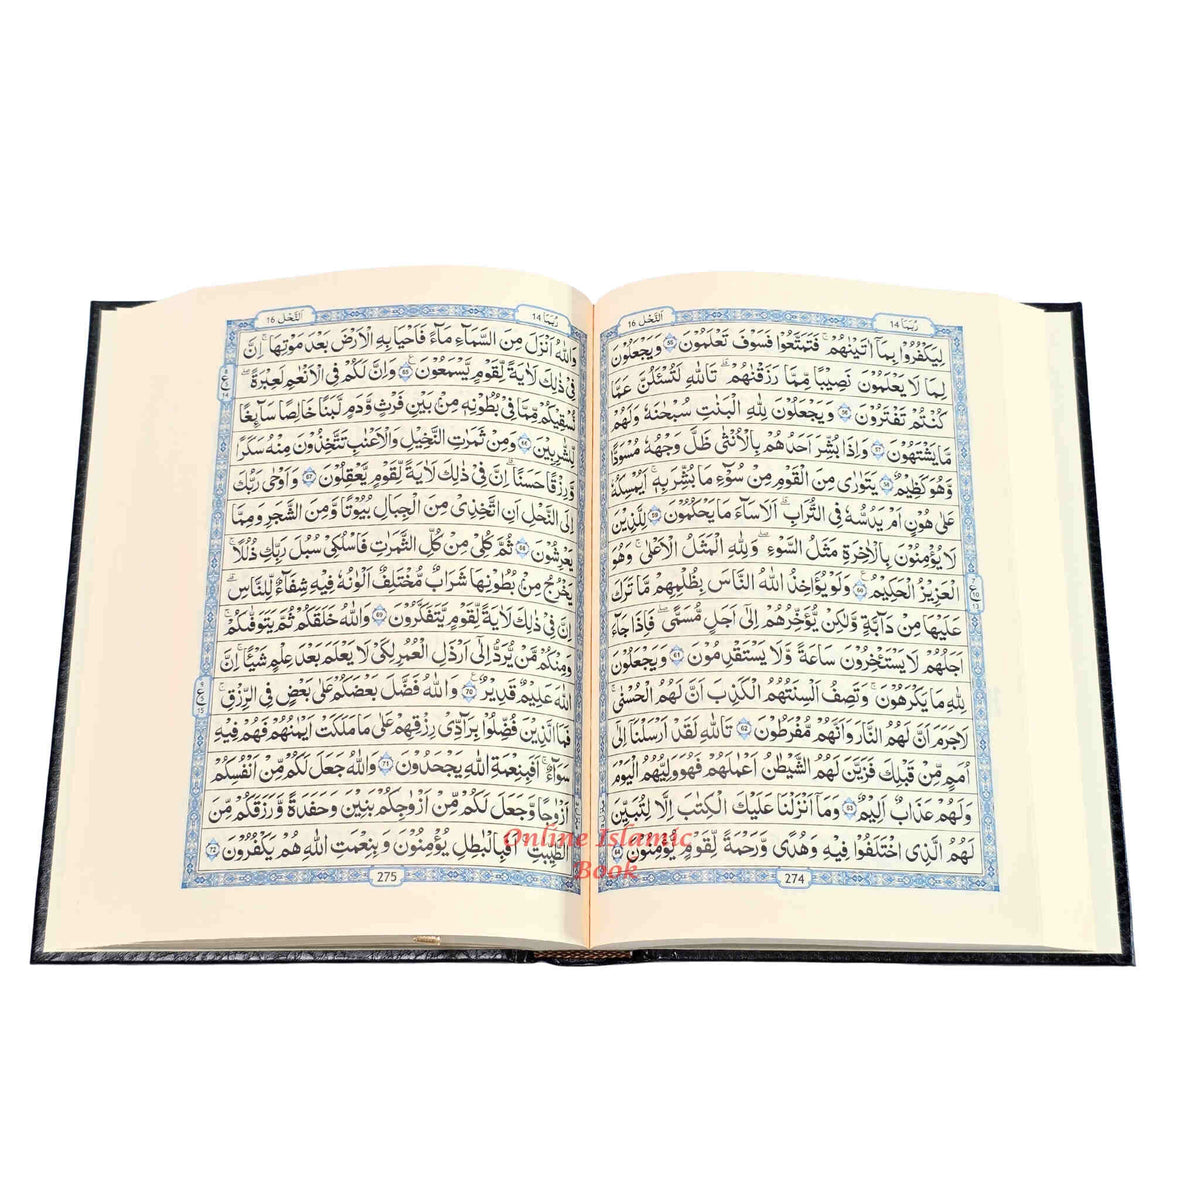 النحل 16
ربما 14
لِيَكْفُرُوْا بِمَاۤ اٰتَيْنٰهُمْ ؕ فَتَمَتَّعُوْا ۫ فَسَوْفَ تَعْلَمُوْنَ 55 وَيَجْعَلُوْنَ
لِمَا لَا يَعْلَمُوْنَ نَصِيْبًا مِّمَّا رَزَقْنٰهُمْ ؕ تَاللّٰهِ لَتُسْئَلُنَّ عَمَّا
كُنْتُمْ تَفْتَرُوْنَ 56 وَيَجْعَلُوْنَ لِلّٰهِ الْبَنٰتِ سُبْحٰنَهٗ ۙ وَلَهُمْ
مَّا يَشْتَهُوْنَ 57 وَاِذَا بُشِّرَ اَحَدُهُمْ بِالْاُنْثٰى ظَلَّ وَجْهُهٗ مُسْوَدًّا
وَّهُوَ كَظِيْمٌ 58 يَتَوَارٰى مِنَ الْقَوْمِ مِنْ سُوْٓءِ مَا بُشِّرَ بِهٖ ؕ اَيُمْسِكُهٗ
عَلٰى هُوْنٍ اَمْ يَدُسُّهٗ فِى التُّرَابِ ؕ اَلَا سَآءَ مَا يَحْكُمُوْنَ 59 لِلَّذِيْنَ
لَا يُؤْمِنُوْنَ بِالْاٰخِرَةِ مَثَلُ السَّوْءِ ۚ وَلِلّٰهِ الْمَثَلُ الْاَعْلٰى ؕ وَهُوَ
الْعَزِيْزُ الْحَكِيْمُ 60 وَلَوْ يُؤَاخِذُ اللّٰهُ النَّاسَ بِظُلْمِهِمْ مَّا تَرَكَ
عَلَيْهَا مِنْ دَآبَّةٍ وَّلٰكِنْ يُّؤَخِّرُهُمْ اِلٰٓى اَجَلٍ مُّسَمًّى ۚ فَاِذَا جَآءَ
اَجَلُهُمْ لَا يَسْتَئْخِرُوْنَ سَاعَةً وَّلَا يَسْتَقْدِمُوْنَ 61 وَيَجْعَلُوْنَ
لِلّٰهِ مَا يَكْرَهُوْنَ وَتَصِفُ اَلْسِنَتُهُمُ الْكَذِبَ اَنَّ لَهُمُ الْحُسْنٰى ؕ
لَا جَرَمَ اَنَّ لَهُمُ النَّارَ وَاَنَّهُمْ مُّفْرَطُوْنَ 62 تَاللّٰهِ لَقَدْ اَرْسَلْنَاۤ اِلٰٓى
اُمَمٍ مِّنْ قَبْلِكَ فَزَيَّنَ لَهُمُ الشَّيْطٰنُ اَعْمَالَهُمْ فَهُوَ وَلِيُّهُمُ الْيَوْمَ
وَلَهُمْ عَذَابٌ اَلِيْمٌ 63 وَمَاۤ اَنْزَلْنَا عَلَيْكَ الْكِتٰبَ اِلَّا لِتُبَيِّنَ
لَهُمُ الَّذِى اخْتَلَفُوْا فِيْهِ ۙ وَهُدًى وَّرَحْمَةً لِّقَوْمٍ يُّؤْمِنُوْنَ 64
274
ع
10
13
النحل 16
ربما 14
وَاللّٰهُ اَنْزَلَ مِنَ السَّمَآءِ مَآءً فَاَحْيَا بِهِ الْاَرْضَ بَعْدَ مَوْتِهَا ؕ اِنَّ
فِىْ ذٰلِكَ لَاٰيَةً لِّقَوْمٍ يَّسْمَعُوْنَ 65 وَاِنَّ لَكُمْ فِى الْاَنْعٰمِ لَعِبْرَةً ؕ
نُسْقِيْكُمْ مِّمَّا فِىْ بُطُوْنِهٖ مِنْۢ بَيْنِ فَرْثٍ وَّدَمٍ لَّبَنًا خَالِصًا سَآئِغًا
لِّلشّٰرِبِيْنَ 66 وَمِنْ ثَمَرٰتِ النَّخِيْلِ وَالْاَعْنٰبِ تَتَّخِذُوْنَ مِنْهُ سَكَرًا
وَّرِزْقًا حَسَنًا ؕ اِنَّ فِىْ ذٰلِكَ لَاٰيَةً لِّقَوْمٍ يَّعْقِلُوْنَ 67 وَاَوْحٰى رَبُّكَ
اِلَى النَّحْلِ اَنِ اتَّخِذِىْ مِنَ الْجِبَالِ بُيُوْتًا وَّمِنَ الشَّجَرِ وَمِمَّا
يَعْرِشُوْنَ 68 ثُمَّ كُلِىْ مِنْ كُلِّ الثَّمَرٰتِ فَاسْلُكِىْ سُبُلَ رَبِّكِ ذُلُلًا ؕ
يَخْرُجُ مِنْۢ بُطُوْنِهَا شَرَابٌ مُّخْتَلِفٌ اَلْوٰنُهٗ فِيْهِ شِفَآءٌ لِّلنَّاسِ ؕ
اِنَّ فِىْ ذٰلِكَ لَاٰيَةً لِّقَوْمٍ يَّتَفَكَّرُوْنَ 69 وَاللّٰهُ خَلَقَكُمْ ثُمَّ يَتَوَفّٰىكُمْ
وَمِنْكُمْ مَّنْ يُّرَدُّ اِلٰٓى اَرْذَلِ الْعُمُرِ لِكَىْ لَا يَعْلَمَ بَعْدَ عِلْمٍ شَيْئًا ؕ اِنَّ
اللّٰهَ عَلِيْمٌ قَدِيْرٌ 70 وَاللّٰهُ فَضَّلَ بَعْضَكُمْ عَلٰى بَعْضٍ فِى الرِّزْقِ ۚ
فَمَا الَّذِيْنَ فُضِّلُوْا بِرَآدِّىْ رِزْقِهِمْ عَلٰى مَا مَلَكَتْ اَيْمٰنُهُمْ فَهُمْ فِيْهِ
سَوَآءٌ ؕ اَفَبِنِعْمَةِ اللّٰهِ يَجْحَدُوْنَ 71 وَاللّٰهُ جَعَلَ لَكُمْ مِّنْ اَنْفُسِكُمْ
اَزْوٰجًا وَّجَعَلَ لَكُمْ مِّنْ اَزْوٰجِكُمْ بَنِيْنَ وَحَفَدَةً وَّرَزَقَكُمْ مِّنَ
الطَّيِّبٰتِ ؕ اَفَبِالْبٰطِلِ يُؤْمِنُوْنَ وَبِنِعْمَتِ اللّٰهِ هُمْ يَكْفُرُوْنَ 72
275
ع
14
ع
15
Online Islamic
Book